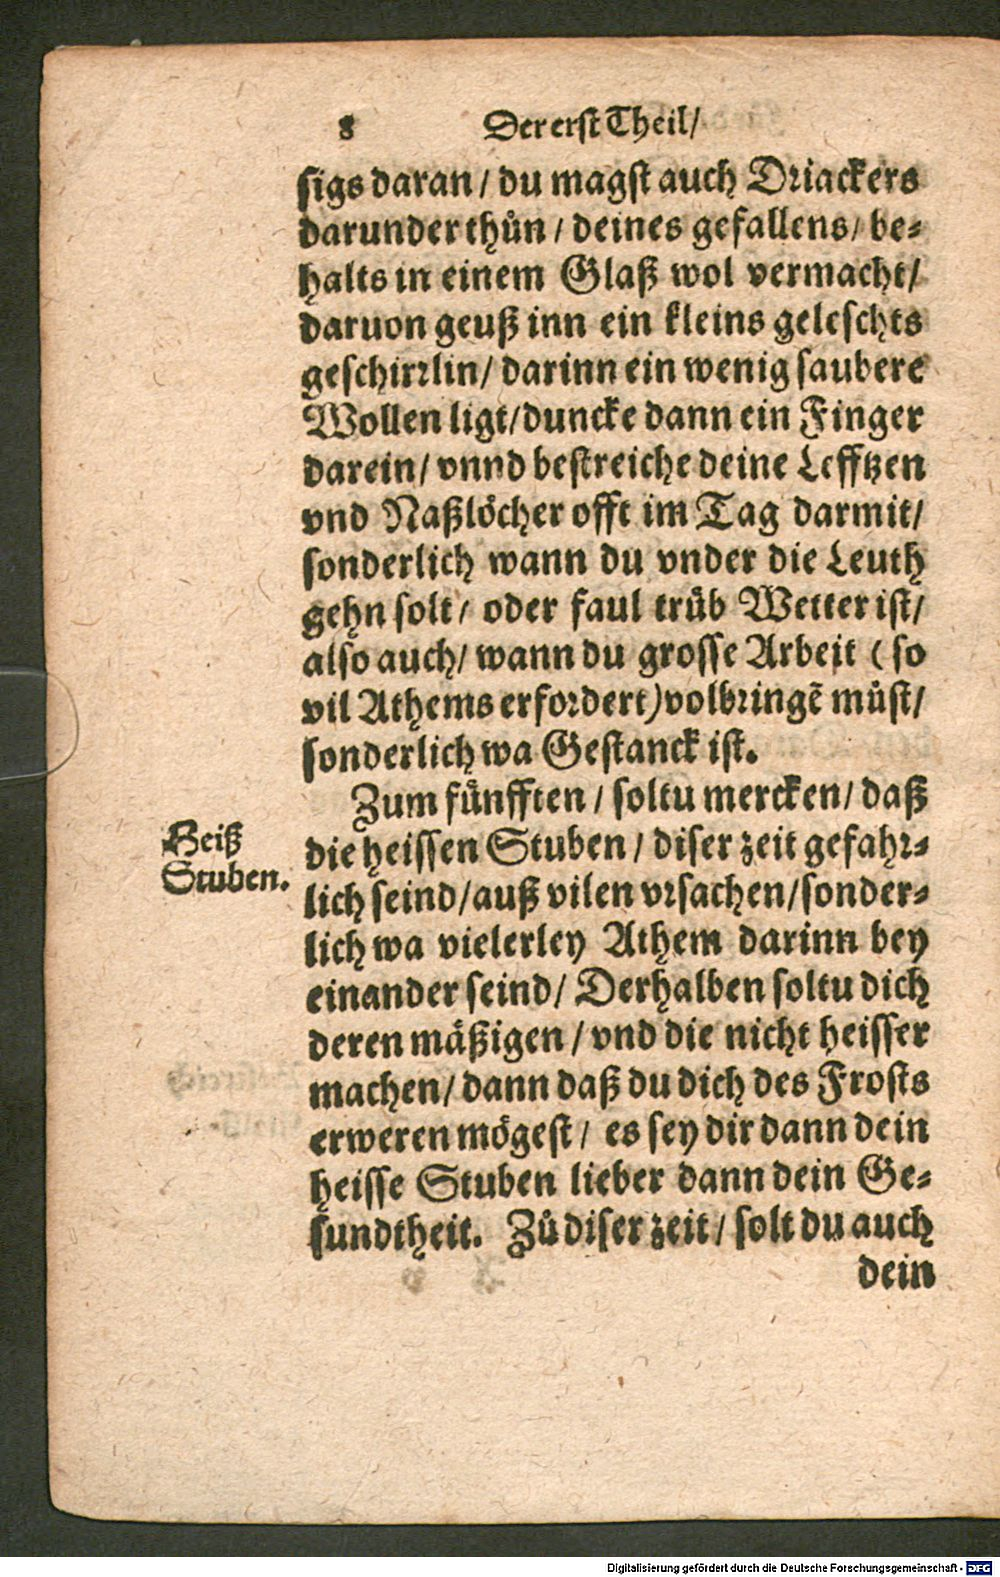 8 Der erst Theil/
sigs daran / du magst auch Driackers
darunder thůn / deines gefallens / be⸗
halts in einem Glaß wol vermacht/
daruon geuß inn ein kleins geleschts
geschirrlin/ darinn ein wenig saubere
Wollen ligt/duncke dann ein Finger
darein/ vnnd bestreiche deine Lefftzen
vnd Naßlöcher offt im Tag darmit/
sonderlich wann du vnder die Leuth
gehn solt/ oder faul trüb Wetter ist/
also auch/ wann du grosse Arbeit ( so
vil Athems erfordert)volbringē müst/
sonderlich wa Gestanck ist.
Zum fünfften / soltu mercken/ daß
Heiß
Stuben.
die heissen Stuben / diser zeit gefahr⸗
lich seind/auß vilen vrsachen/sonder⸗
lich wa vielerley Athem darinn bey
einander seind/ Derhalben soltu dich
deren mäßigen / vnd die nicht heisser
machen/ dann daß du dich des Frosts
erweren mögest / es sey dir dann dein
heisse Stuben lieber dann dein Ge⸗
sundtheit. Zů diser zeit / solt du auch
dein
Digitalisierung gefördert durch die Deutsche Forschungsgemeinschaft - DFG